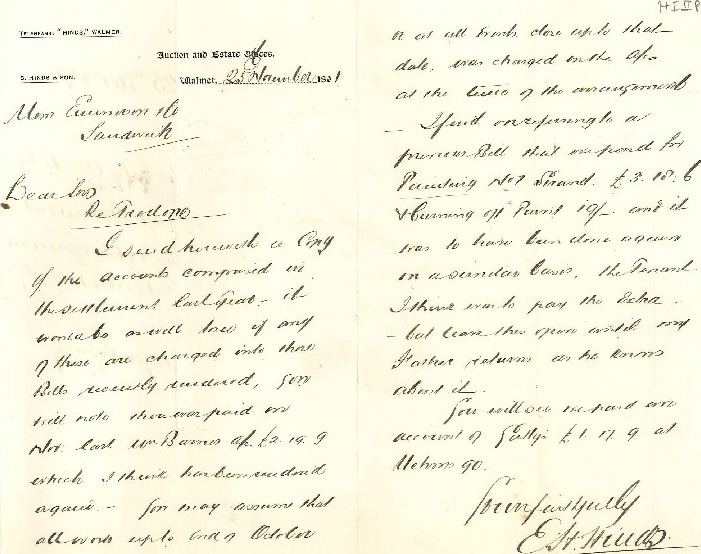 HIIIP
TELEGRAMS: "HINDS," WALMER.
Auction and Estate Offices,
S. HINDS & SON.
Walmer, 25 November 1891
Messrs Emmerson & Co
Sandwich
Dear Sirs
Re
I send herewith a Copy
of the accounts comprised in
the settlement last year. it
would be as well to see if any
of these are charged into those
Bills recently rendered, you
will note there was paid in
Nov. last Wm Barnes a/c £2. 19. 9
which I think has been rendered
again. - You may assume that
all work up to end of October
or at all events close up to that
date, was charged in the a/cs
at the time of the arrangement
- I find on referring to a
previous Bill that we paid for
Painting No 1 Strand. £3. 18. 6
& Burning off Paint 10/- and it
was to have been done again
on a similar basis, the Tenant
I think was to pay the Extra -
- but leave this open until my
Father returns as he knows
about it.
You will see we paid an
account of £1. 17. 9 at
Mchms 90.
Yours faithfully
E Hinds